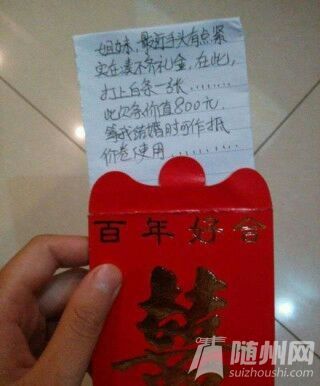 姐妹,最近手头有点紧
实在凑不齐礼金,在此,
打上白条一张......
此欠条价值800元.
等我结婚时可作抵
价卷使用......
百年好合
囍
随州网
suizhoushi.com